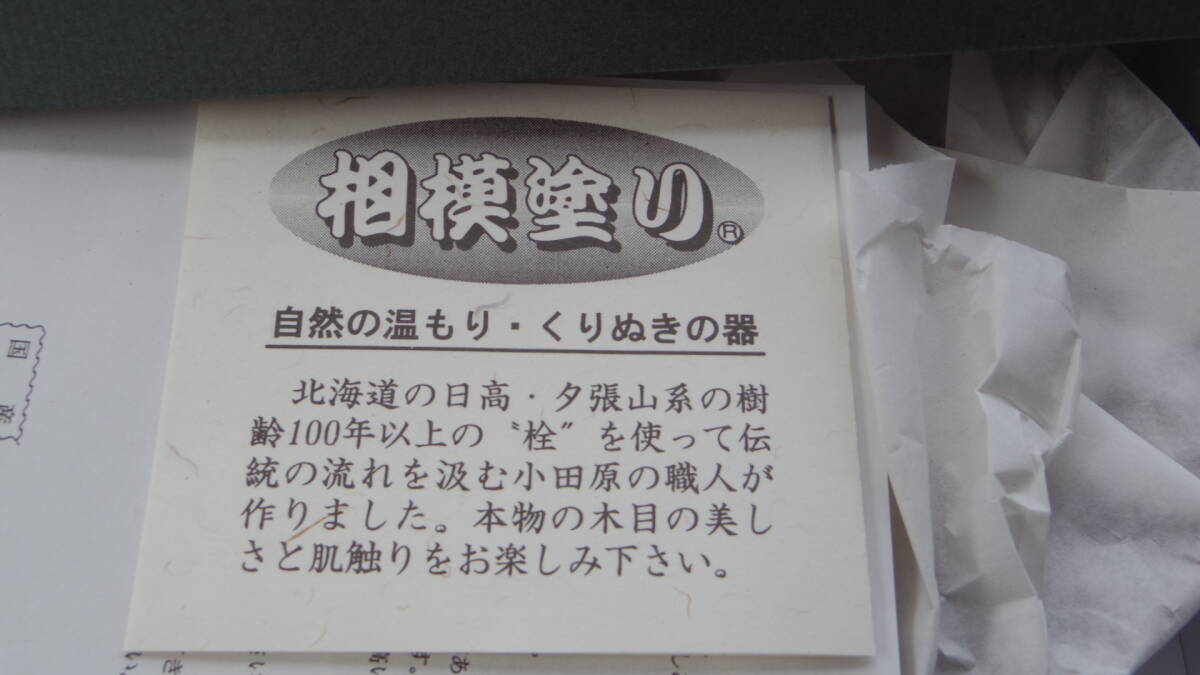 相模塗り®
自然の温もり・くりぬきの器
北海道の日高・夕張山系の樹
齢100年以上の〝栓〟を使って伝
統の流れを汲む小田原の職人が
作りました。本物の木目の美し
さと肌触りをお楽しみ下さい。
国